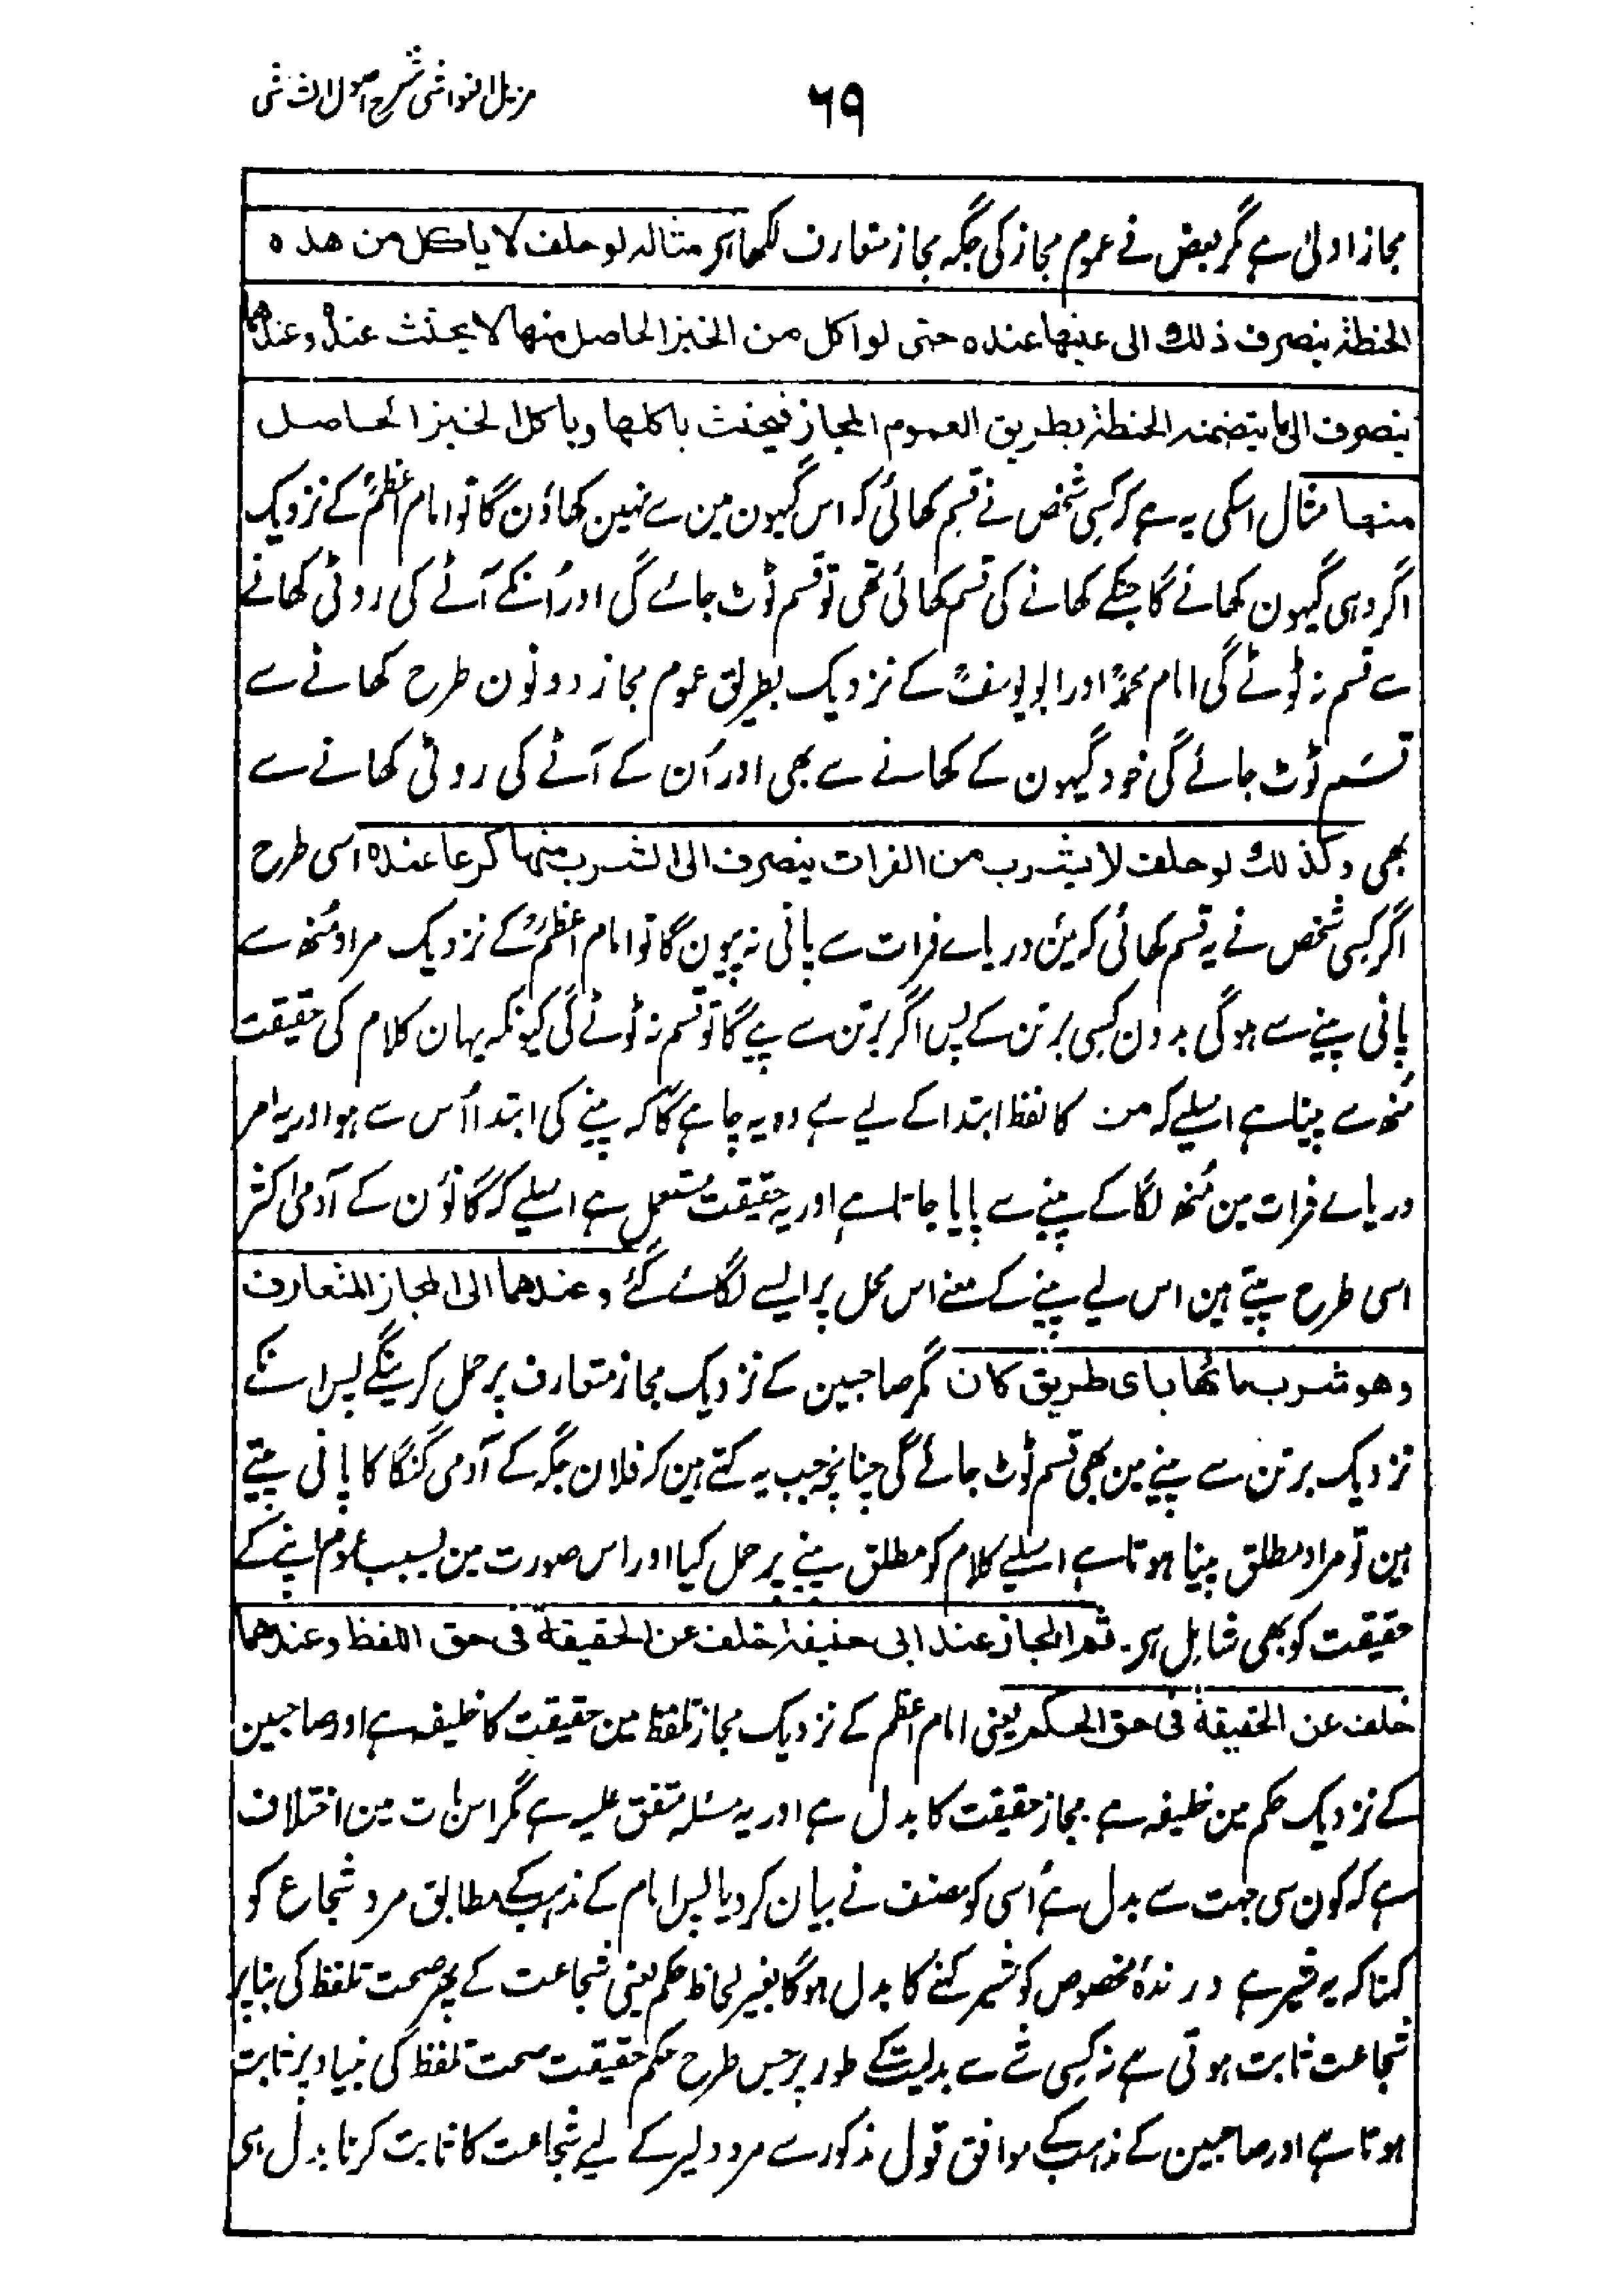 مزیل الغواشی شرح اصول الشاشی
٦٩
مجاز اولیٰ ہے مگر بعض نے عموم مجاز کی جگہ مجاز متعارف لکھا ہر مثاله لو حلف لا یاکل من هذه
الحنطة ینصرف ذلك الی عینها عنده حتی لو اکل من الخبز الحاصل منها لا یحنث عنده وعندهما
ینصرف الی ما یتضمنه الحنطة بطریق العموم المجاز فیحنث باکلها وباکل الخبز الحاصل
منها مثال اسکی یہ ہے کہ کسی شخص نے قسم کھائی کہ اس گیہون مین سے نہین کھاؤن گا تو امام اعظمؒ کے نزدیک
اگر وہی گیہون کھانے گا جنکے کھانے کی قسم کھائی تھی تو قسم ٹوٹ جائے گی اور اُنکے آٹے کی روٹی کھانے
سے قسم نہ ٹوٹے گی امام محمدؒ اور ابو یوسفؒ کے نزدیک بطریق عموم مجاز دونون طرح کھانے سے
قسم ٹوٹ جائے گی خود گیہون کے کھانے سے بھی اور اُن کے آٹے کی روٹی کھانے سے
بھی وکذلك لو حلف لا یشرب من الفرات ینصرف الی الشرب منها کرعا عنده اسی طرح
اگر کسی شخص نے یہ قسم کھائی کہ مین دریاے فرات سے پانی نہ پیون گا تو امام اعظمؒ کے نزدیک مراد مُنھ سے
پانی پینے سے ہوگی بدون کسی برتن کے پس اگر برتن سے پیے گا تو قسم نہ ٹوٹے گی کیونکہ یہان کلام کی حقیقت
مُنھ سے پینا ہے اسلیے کہ من کا لفظ ابتدا کے لیے ہے وہ یہ چاہے گا کہ پینے کی ابتدا اُس سے ہو اور یہ امر
دریاے فرات مین مُنھ لگا کے پینے سے پایا جاتا ہے اور یہ حقیقت مستعمل ہے اسلیے کہ گانوُن کے آدمی اکثر
اسی طرح پیتے ہین اس لیے پینے کے معنے اس محل پر ایسے لگائے گئے وعندهما الی المجاز المتعارف
وهو شرب مائها بای طریق کان مگر صاحبین کے نزدیک مجاز متعارف پر حمل کرینگے پس انکے
نزدیک برتن سے پینے مین بھی قسم ٹوٹ جائے گی چنانچہ جب یہ کہتے ہین کہ فلان جگہ کے آدمی گنگا کا پانی پیتے
ہین تو مراد مطلق پینا ہوتا ہے اسلیے کلام کو مطلق پینے پر حمل کیا اور اس صورت مین بسبب عموم اپنے کے
حقیقت کو بھی شامل ہر۔ ثم المجاز عند ابی حنیفة خلف عن الحقیقة فی حق اللفظ وعندهما
خلف عن الحقیقة فی حق الحکم یعنی امام اعظم کے نزدیک مجاز تلفظ مین حقیقت کا خلیفہ ہے اور صاحبین
کے نزدیک حکم مین خلیفہ ہے۔ مجاز حقیقت کا بدل ہے اور یہ مسئلہ متفق علیہ ہے مگر اس بات مین اختلاف
ہے کہ کون سی جہت سے بدل ہے اُسی کو مصنف نے بیان کر دیا پس امام کے مذہب کے مطابق مرد شجاع کو
کہنا کہ یہ شیر ہے درندۂ مخصوص کو شیر کہنے کا بدل ہوگا بغیر لحاظ حکم یعنی شجاعت کے پھر صحت تلفظ کی بنا پر
شجاعت ثابت ہوتی ہے نہ کسی شے سے بدلیت کے طور پر جس طرح حکم حقیقت صحت تلفظ کی بنیاد پر ثابت
ہوتا ہے اور صاحبین کے مذہب کے موافق قول مذکور سے مرد دلیر کے لیے شجاعت کا ثابت کرنا بدل ہی